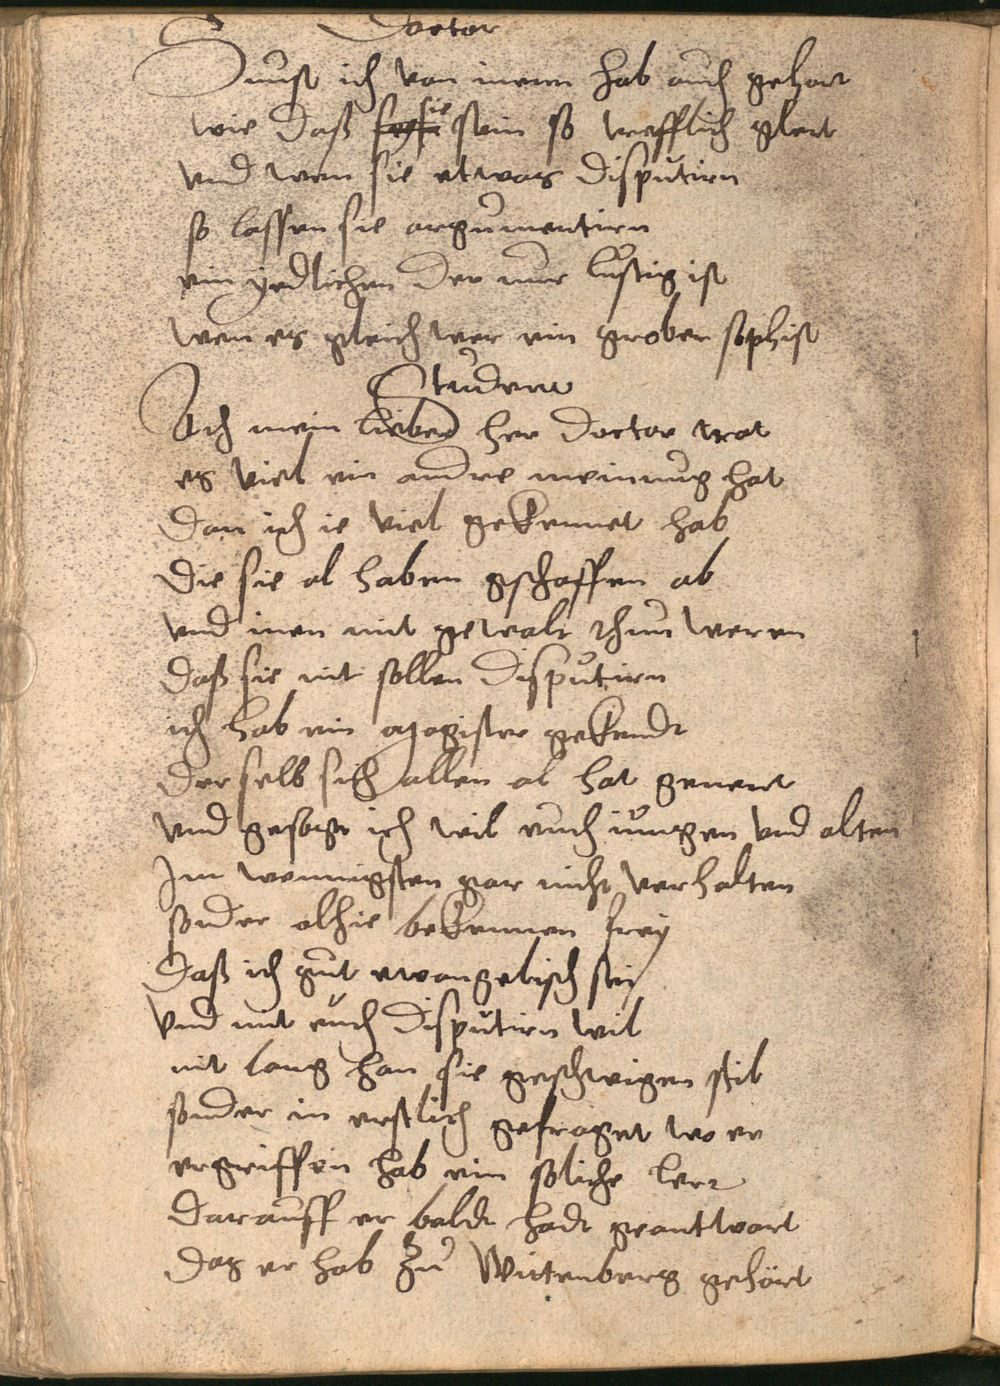 Doctor
Sunst ich von innen hab auch gehort
wie daß sie sein so trefflich glert
vnd wen sie etwas disputirn
so lassen sie argumentirn
ein yedlichen der nur lustig ist
wen es gleich wer ein grober sophist
Student
Ach mein lieber her doctor trat
es viel ein andre meinnug hat
dan ich ie viel gekennet hab
die sie al haben gschaffen ab
vnd inen mit gewalt thun weren
daß sie nit sollen disputirn
ich hab ein magister gekendt
der selb sich allen al hat genent
vnd gesagt ich wil euch iungen vnd alten
Im wennigsten gar nicht verhalten
sonder alhie bekennen frey
daß ich gut ewangelisch sei
vnd mit euch disputirn wil
nit lang han sie geschwigen stil
sonder in erstlich gefraget wo er
ergriffen hab ein soliche lerr
darauff er baldt hadt geantwort
das er hab zu Wittenberg gehört